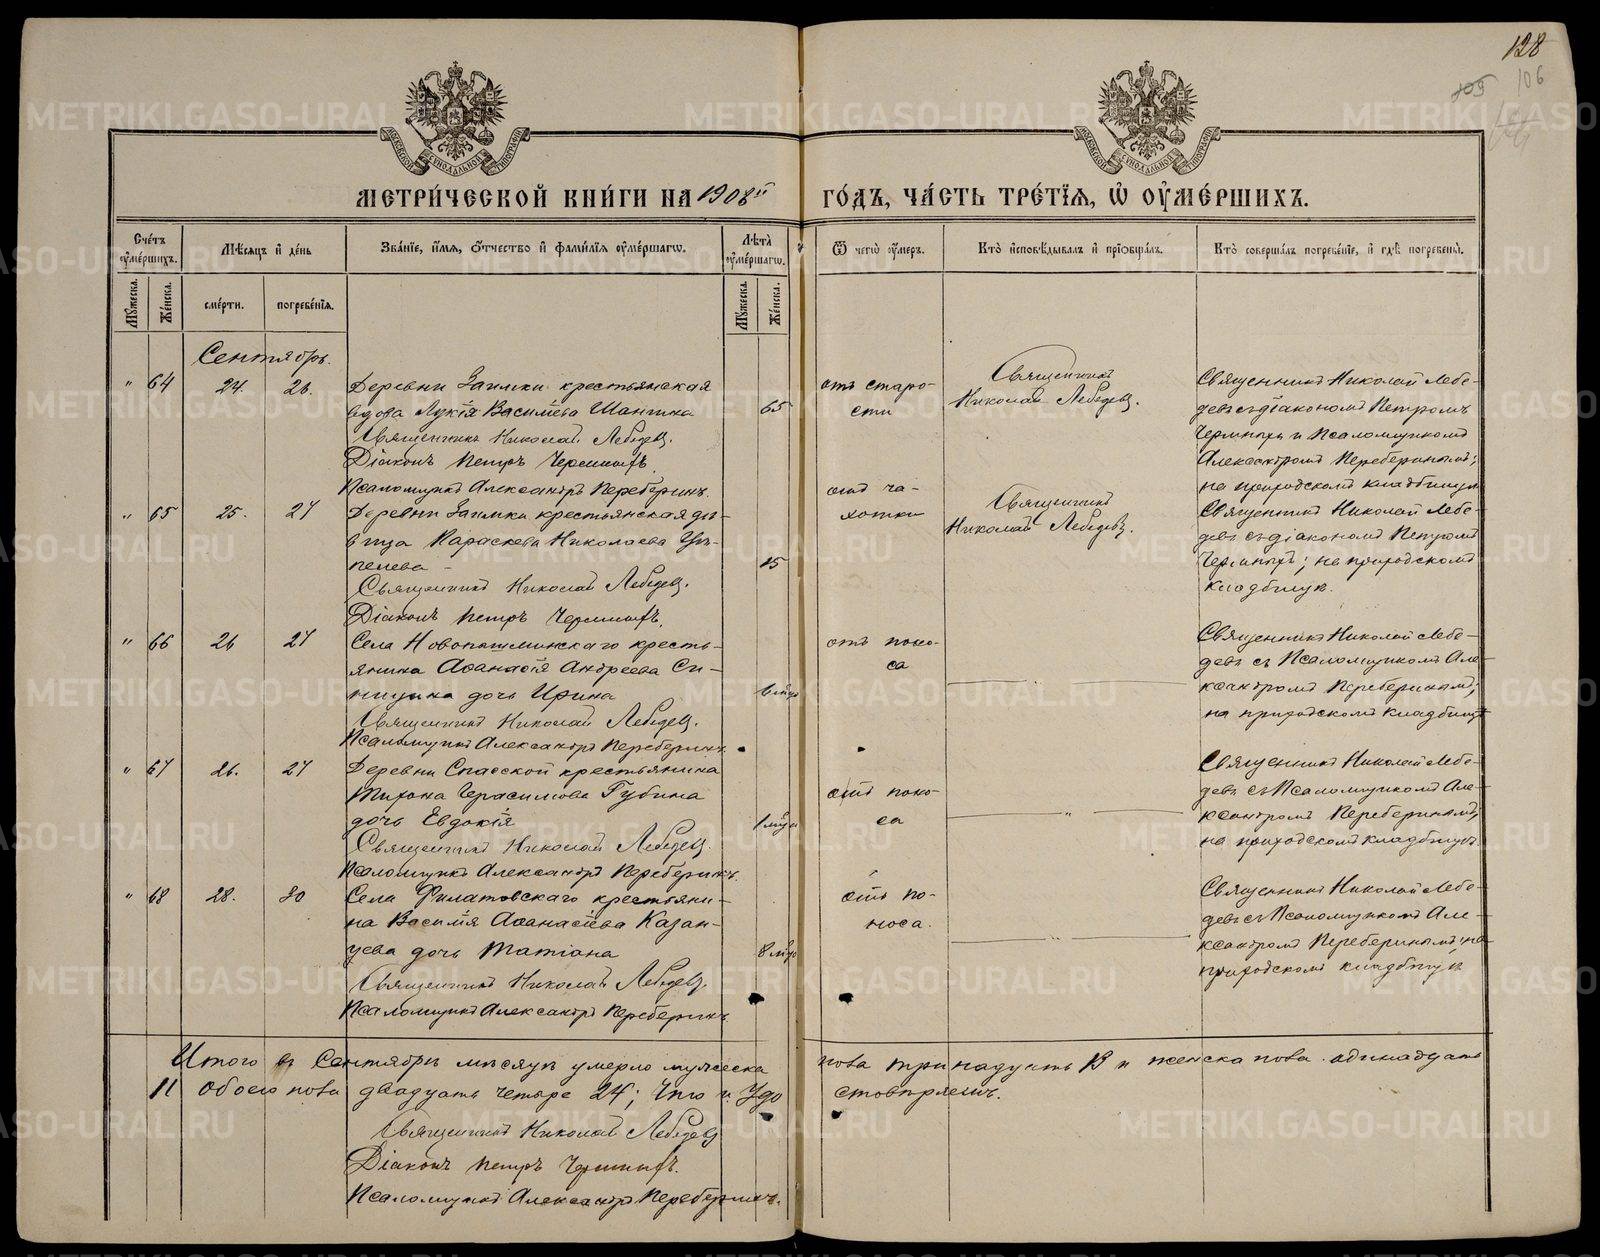 128
105 106
МЕТРИ́ЧЕСКОЙ КНИ́ГИ НА 1908й ГО́ДЪ, ЧА́СТЬ ТРЕ́ТІЯ, Ѡ ОУ҆МЕ́РШИХЪ.
Сче́тъ оу҆ме́ршихъ.
Мѣ́сяцъ и҆ де́нь
Зва́ніе, и҆́мя, ѻ҆́тчество и҆ фами́лія оу҆ме́ршагѡ.
Лѣ́та оу҆ме́ршагѡ.
Ѿ чегѡ̀ оу҆́меръ.
Кто̀ и҆сповѣ́дывалъ и҆ пріѡбща́лъ.
Кто̀ соверша́лъ погребе́ніе, и҆ гдѣ̀ погребены̀.
Мꙋ́жеска. Же́нска. сме́рти. погребе́нія. Мꙋ́жеска. Же́нска.
Сентябрь.
" 64 24. 26. Деревни Заимки крестьянская
вдова Лукія Василіева Шангина 65
Священникъ Николай Лебедевъ.
Діаконъ Петръ
Псаломщикъ Александръ Переберинъ.
отъ старо-
сти
Священникъ
Николай Лебедевъ.
Священникъ Николай Лебе-
девъ съ діакономъ Петромъ
и Псаломщикомъ
Александромъ Переберинымъ;
на приходскомъ кладбищѣ
" 65 25. 27 Деревни Заимки крестьянская дѣ-
вица Параскева Николаева
пелева 15
Священникъ Николай Лебедевъ.
Діаконъ Петръ
отъ ча-
хотки
Священникъ
Николай Лебедевъ.
Священникъ Николай Лебе-
девъ съ діакономъ Петромъ
на приходскомъ
кладбищѣ.
" 66 26 27 Села Новопышминскаго кресть-
янина Аѳанасія Андреева Си-
ницына дочь Ирина
Священникъ Николай Лебедевъ.
Псаломщикъ Александръ Переберинъ.
отъ поно-
са
Священникъ Николай Лебе-
девъ съ Псаломщикомъ Але-
ксандромъ Переберинымъ;
на приходскомъ кладбищѣ
" 67 26. 27 Деревни Спасской крестьянина
Тихона Герасимова Губина
дочь Евдокія
Священникъ Николай Лебедевъ.
Псаломщикъ Александръ Переберинъ.
отъ поно-
са
"
Священникъ Николай Лебе-
девъ съ Псаломщикомъ Але-
ксандромъ Переберинымъ;
на приходскомъ кладбищѣ
" 68 28. 30 Села Филатовскаго крестьяни-
на Василія Аѳанасіева Казан-
цева дочь Татіана
Священникъ Николай Лебедевъ.
Псаломщикъ Александръ Переберинъ
отъ по-
носа.
Священникъ Николай Лебе-
девъ съ Псаломщикомъ Але-
ксандромъ Переберинымъ; на
приходскомъ кладбищѣ
Итого въ Сентябрѣ мѣсяцѣ умерло мужеска пола тринадцать 13 и женска пола одинадцать
11 обоего пола двадцать четыре 24; Что и удо
стовѣряемъ.
Священникъ Николай Лебедевъ
Діаконъ Петръ
Псаломщикъ Александръ Переберинъ.
METRIKI.GASO-URAL.RU